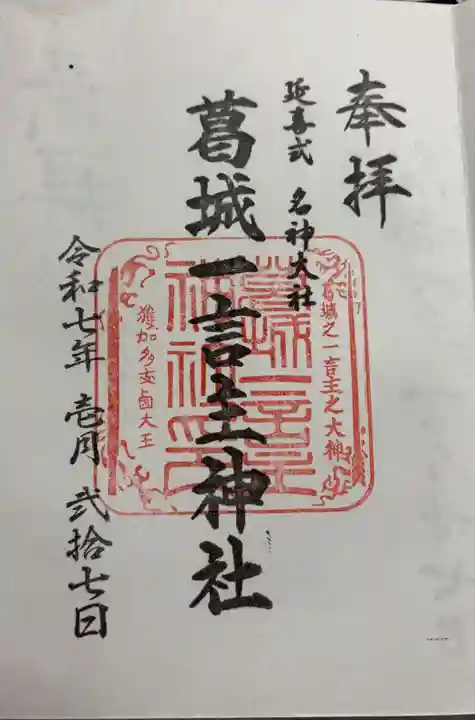 奉拝
延喜式 名神大社
葛城一言主神社
令和七年 壱月 弐拾七日
葛城之一言主之大神
葛城一言主
神社之印
獲加多支鹵大王